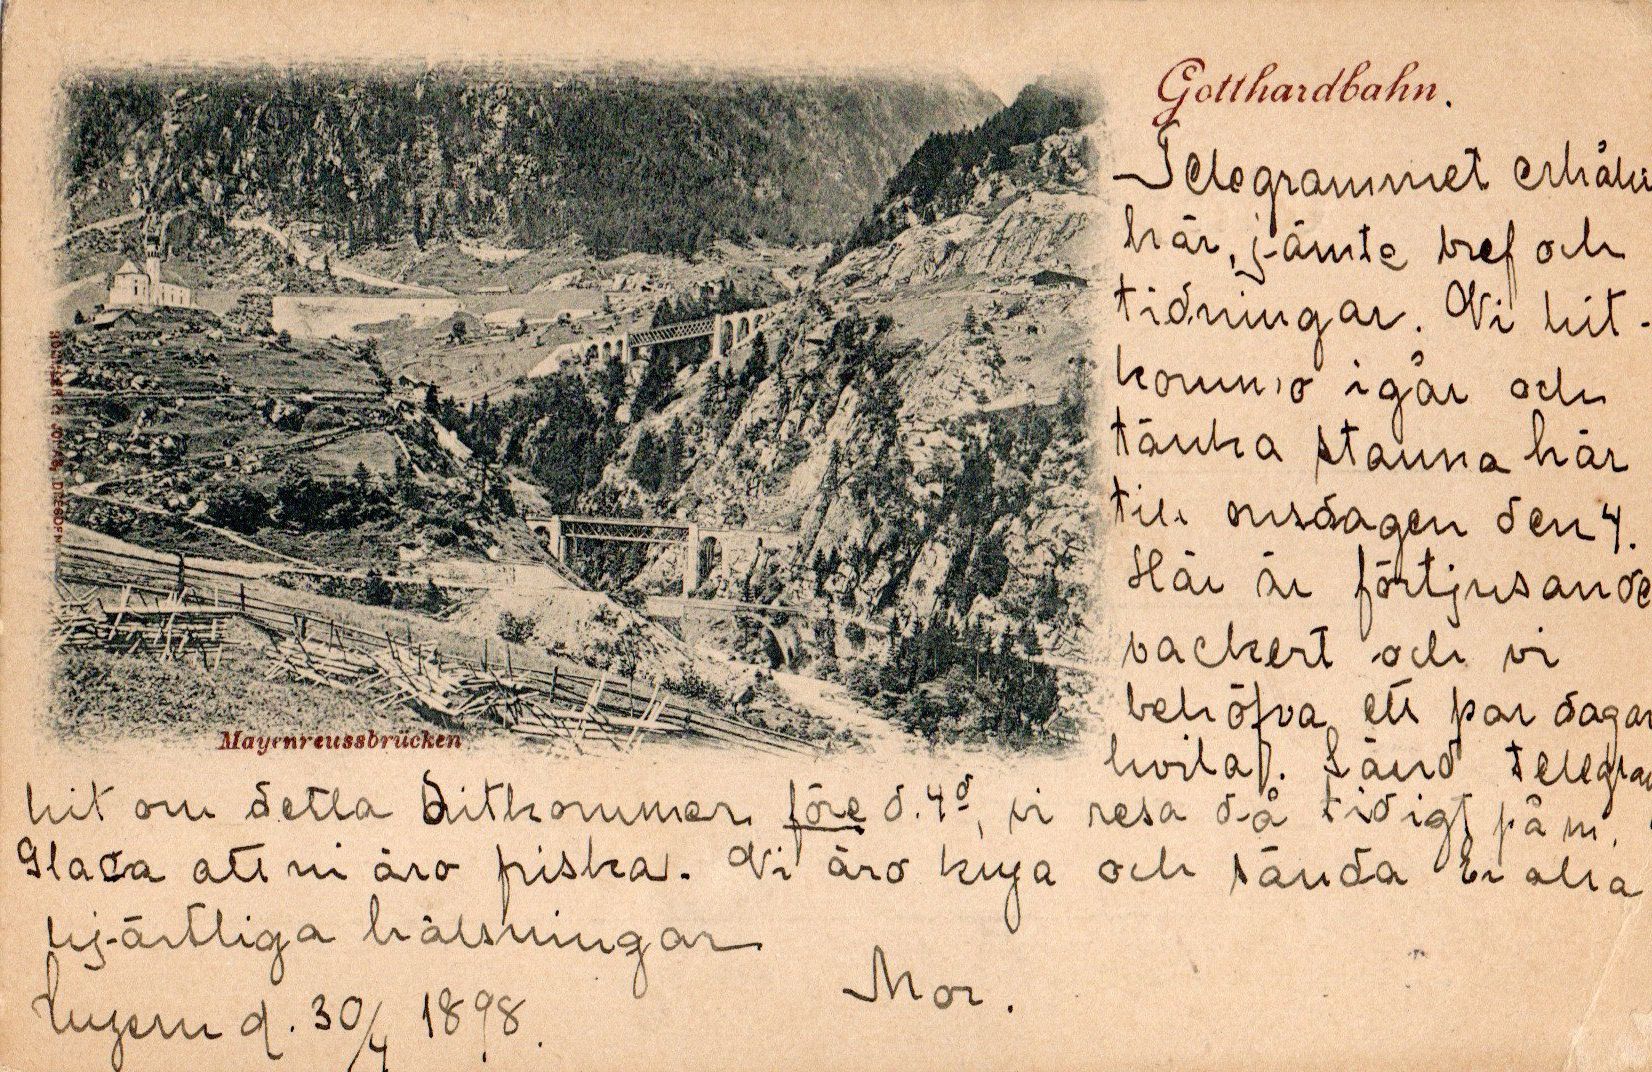 Gotthardbahn.
Telegrammet erhålls
här, jämte bref och
tidningar. Vi hit-
kommo igår och
tänka stanna här
till onsdagen den 4.
Här är förtjusande
vackert och vi
behöfva ett par dagar
hvila. Sänd telegram
hit om detta ditkommer före d. 4d, vi resa då tidigt på m.
Glada att ni äro friska. Vi äro krya och sända Er alla
hjärtliga hälsningar
Mor.
Luzern d. 30/4 1898.
Mayenreussbrücken